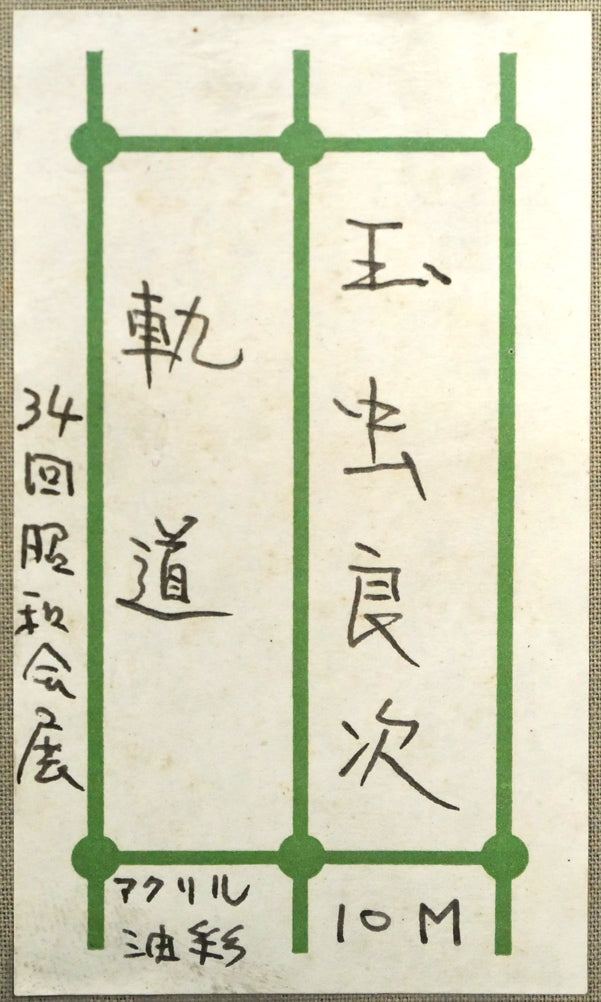 玉虫良次
軌道
34回昭和会展
10M
アクリル
油彩